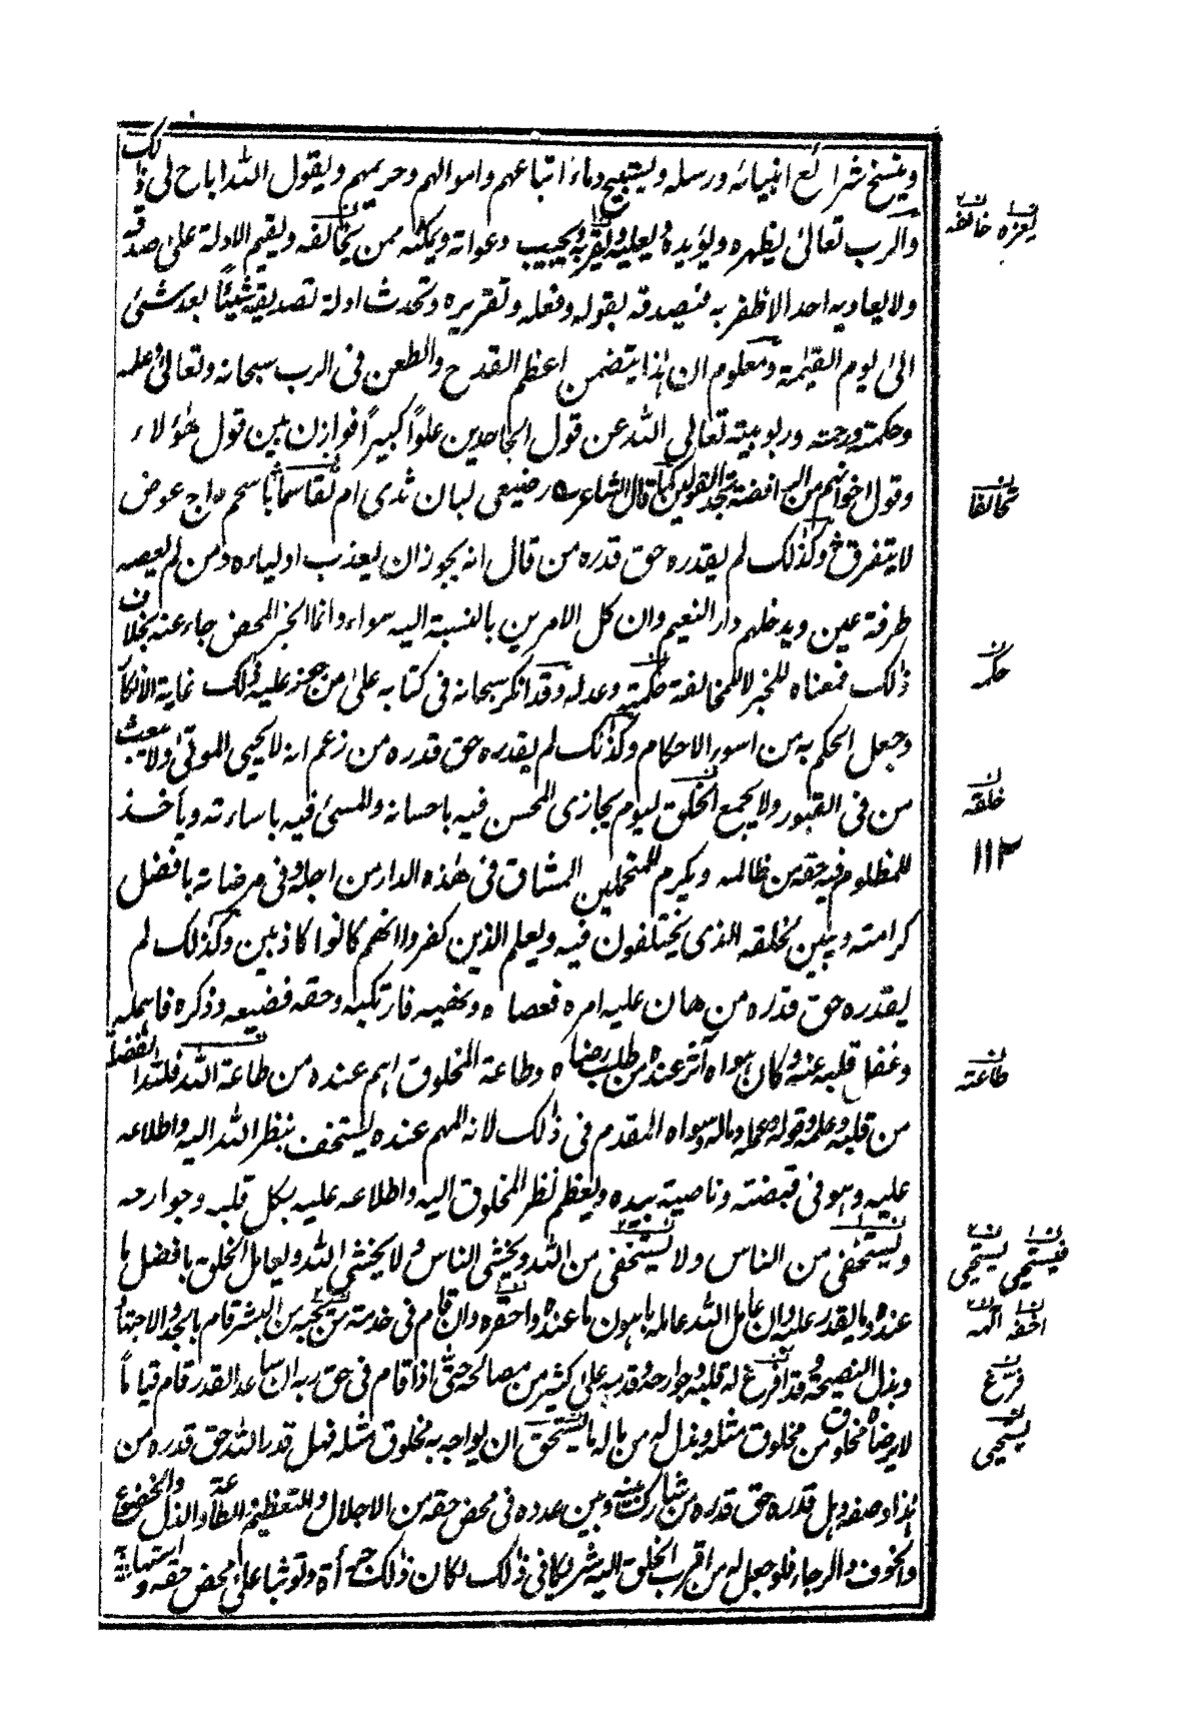 وينسخ شرائع انبيائه ورسله ويستبيح دماء اتباعهم واموالهم وحريمهم ويقول الله اباح لى ذلك
والرب تعالىٰ يظهره ويؤيده ويعليه ويقربه ويجيب دعواته ويمكنه ممن يخالفه ويقيم الادلة علىٰ صدقه
ولا يعاديه احد الا ظفر به فيصدقه بقوله وفعله وتقريره وتحدث ادلة تصديقه شيئًا بعد شئ
الىٰ يوم القيٰمة ومعلوم ان هٰذا يتضمن اعظم القدح والطعن فى الرب سبحانه وتعالىٰ وعلمه
وحكمته ورحمته وربوبيته تعالى الله عن قول الجاحدين علوًا كبيرًا فوازن بين قول هٰؤلاء
وقول اخوانهم من الرافضة تجد القولين كما قال الشاعر ؎ رضيعى لبان ثدى ام تقاسما باسحم داج عوض
لا يتفرق وكذٰلك لم يقدره حق قدره من قال انه يجوز ان يعذب اولياءه ومن لم يعصه
طرفة عين ويدخلهم دار النعيم وان كل الامرين بالنسبة اليه سواء وانما الخبر المحض جاء عنه بخلاف
ذٰلك فمعناه للخبر لا للمخالفة حكمته وعدله وقد انكر سبحانه فى كتابه علىٰ من جوز عليه ذٰلك غاية الانكار
وجعل الحكم به من اسوء الاحكام وكذٰلك لم يقدره حق قدره من زعم انه لا يحيى الموتىٰ ولا يبعث
من فى القبور ولا يجمع الخلق ليوم يجازى المحسن فيه باحسانه والمسئ فيه باساءته ويأخذ
للمظلوم فيه حقه من ظالمه ويكرم المتحملين المشاق فى هٰذه الدار من اجله وفى مرضاته بافضل
كرامته ويبين لخلقه الذى يختلفون فيه وليعلم الذين كفروا انهم كانوا كاذبين وكذٰلك لم
يقدره حق قدره من هان عليه امره فعصاه ونهيه فارتكبه وحقه فضيعه وذكره فاهمله
وغفل قلبه عنه وكان هواه آثر عنده من طلب رضاه وطاعة المخلوق اهم عنده من طاعة الله فلله الفضلة
من قلبه وعلمه وقوله وعمله وماله وسواه المقدم فى ذٰلك لانه المهم عنده يستخف بنظر الله اليه واطلاعه
عليه وهو فى قبضته وناصيته بيده ويعظم نظر المخلوق اليه واطلاعه عليه بكل قلبه وجوارحه
ويستخفى من الناس ولا يستخفى من الله ويخشى الناس ولا يخشى الله ويعامل الخلق بافضل ما
عنده وما يقدر عليه وان عامل الله عامله باهون ما عنده واحقره وان قام فى خدمة من يحبه من البشر قام بالجد والاجتهاد
وبذل النصيحة وقد افرغ له قلبه وجوارحه وقدمه علىٰ كثير من مصالحه حتىٰ اذا قام فى حق ربه ان ساعد القدر قام قياماً
لا يرضاه مخلوق من مخلوق مثله وبذل له من ماله ما يستحق ان يواجه به مخلوق مثله فهل قدر الله حق قدره من
هٰذا وصفه وهل قدره حق قدره من شارك بينه وبين عدوه فى محض حقه من الاجلال والتعظيم والطاعة والذل والخضوع
والخوف والرجاء فلو جعل له من اقرب الخلق اليه شريكا فى ذٰلك لكان ذٰلك جرأة وتوثبا علىٰ محض حقه واستهانة
يعزه خالفه
تحالفا
حكمه
خلقه
١١٢
طاعته
فيستحى يستحى
اخفه الٰهه
فرّغ
يستحيى